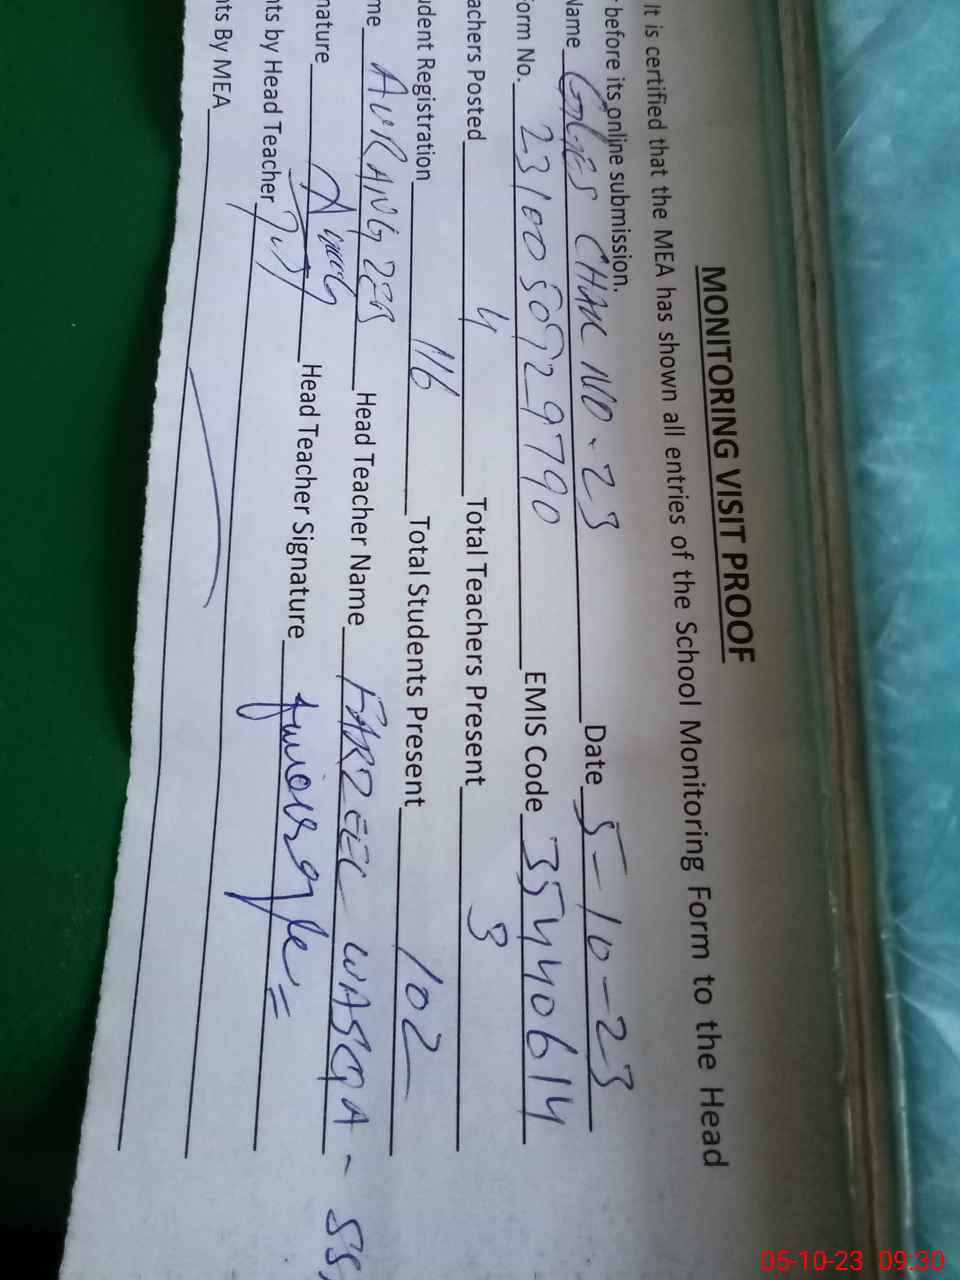 MONITORING VISIT PROOF
It is certified that the MEA has shown all entries of the School Monitoring Form to the Head
before its online submission.
Name GGES CHAK NO. 23 Date 5-10-23
orm No. 23100 5092 9790 EMIS Code 35440614
achers Posted 4 Total Teachers Present 3
udent Registration 116 Total Students Present 102
me AURANGZEB Head Teacher Name WASQA - SS
nature Head Teacher Signature
nts by Head Teacher
nts By MEA
05-10-23 09:30